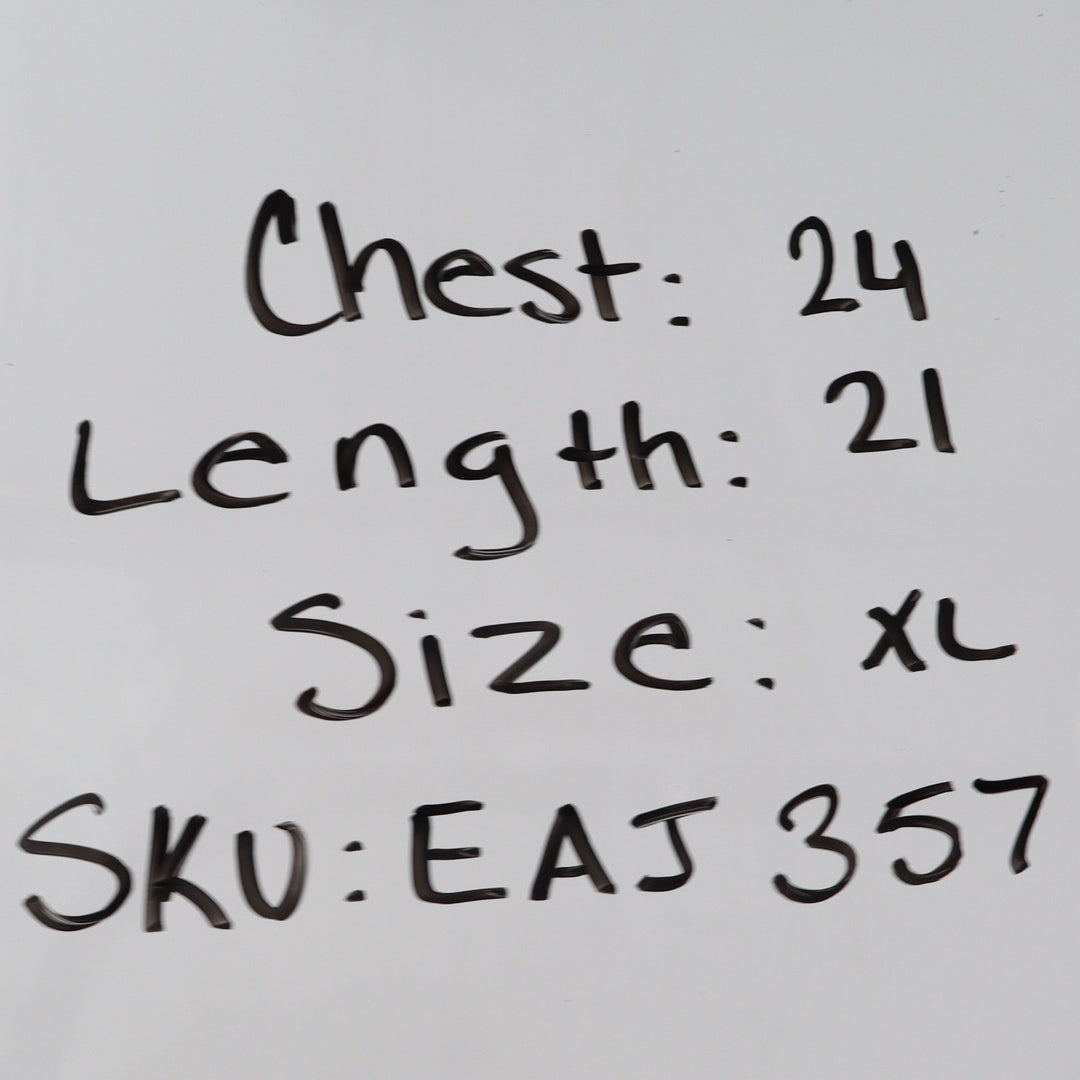 Chest: 24
Length: 21
Size: XL
SKU: EAJ 357